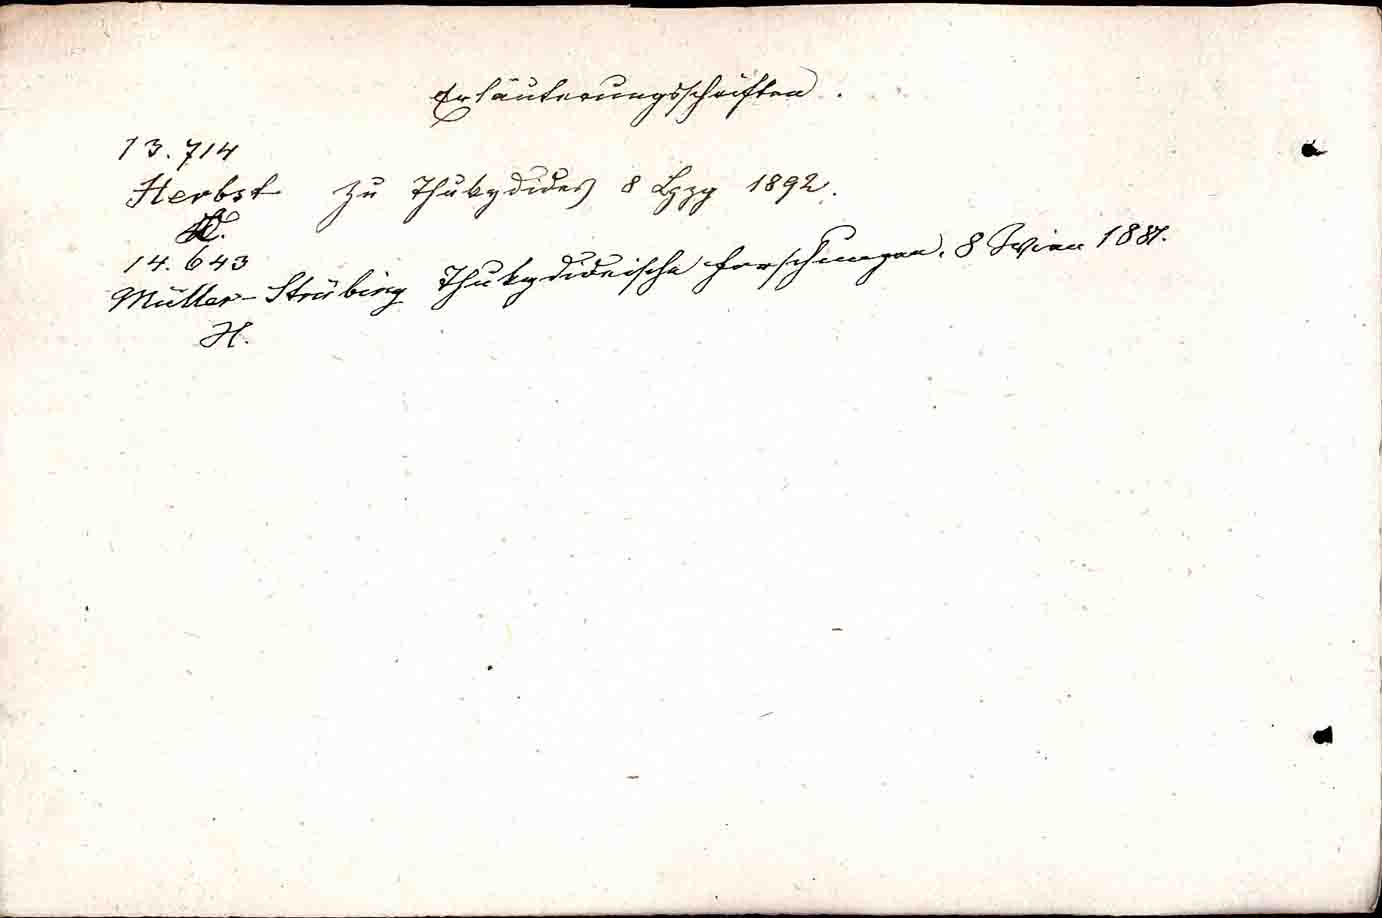 Erläuterungsschriften.
13.714
Herbst zu Thukydides 8 Lpzg 1892.
L.
14.643
Müller-Strübing Thukydideische Forschungen. 8 Wien 1881.
H.